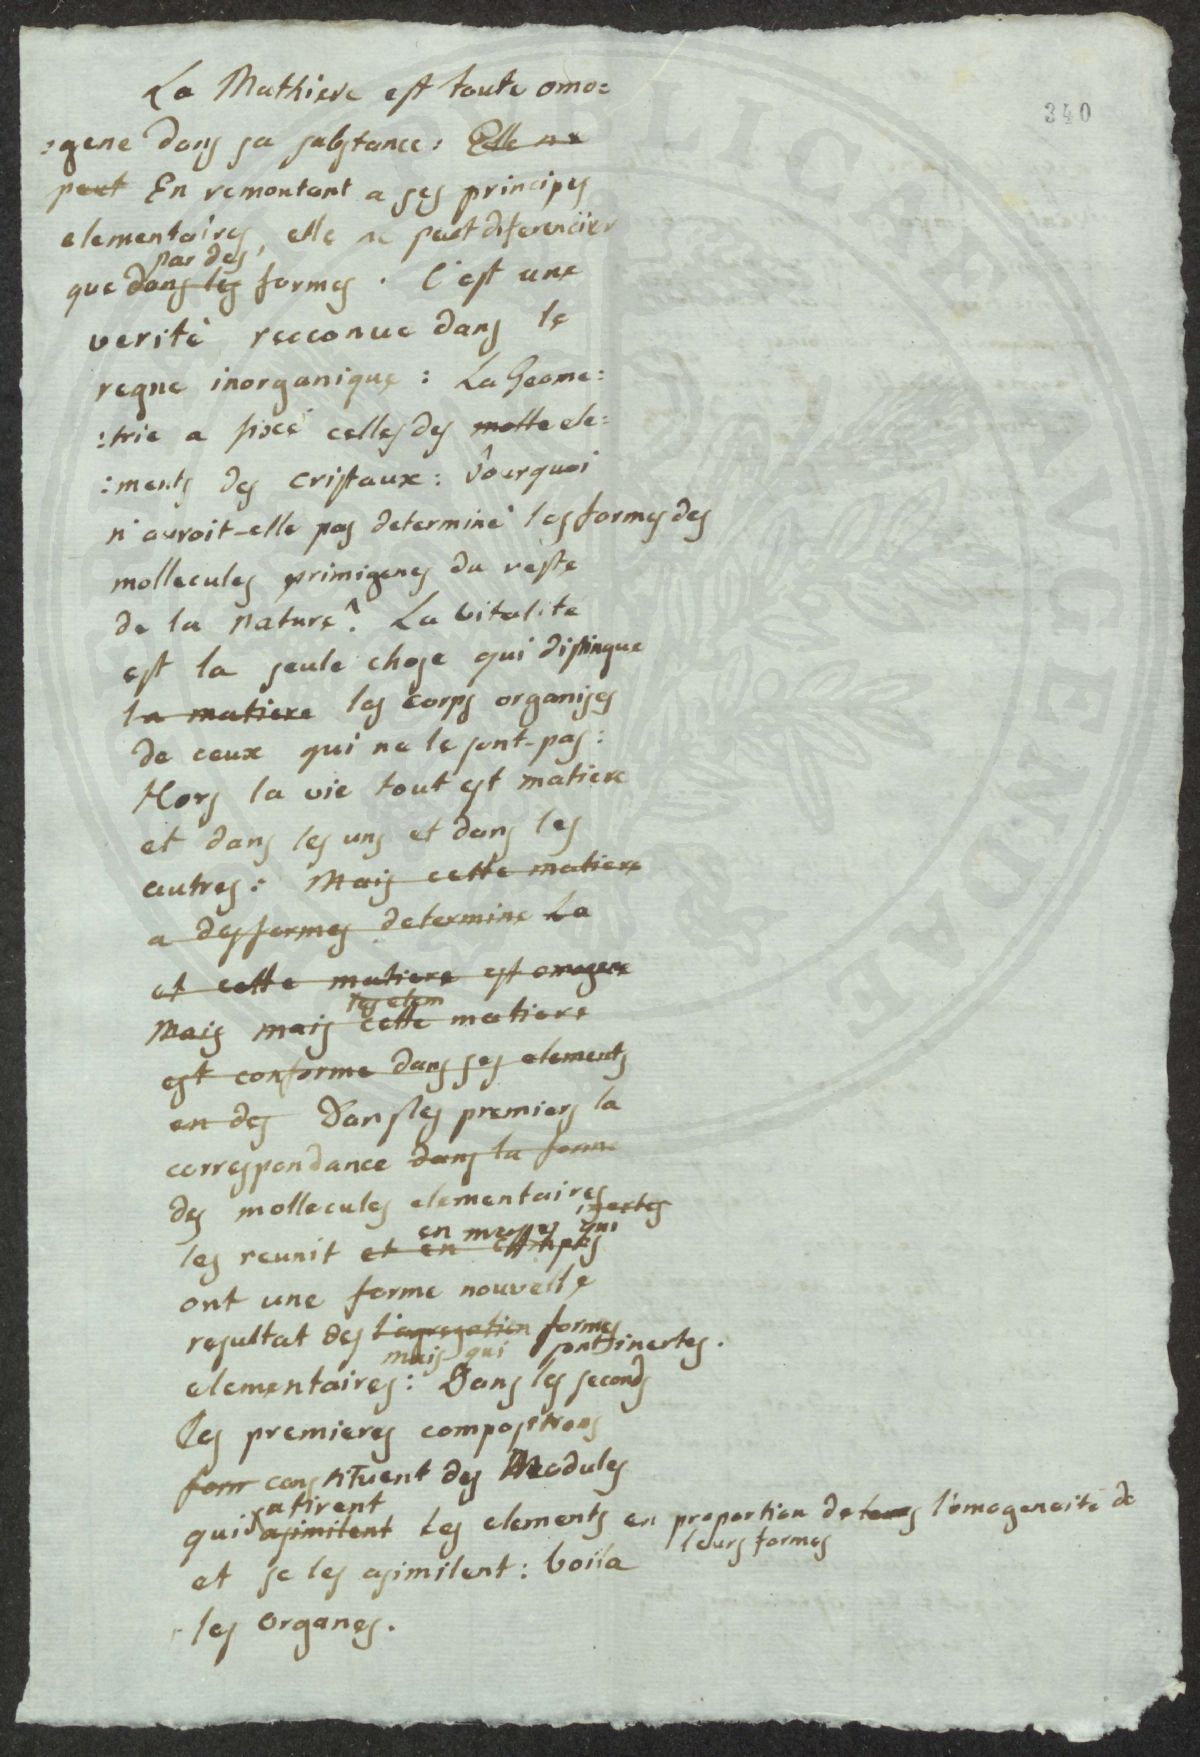 340
La Mathiere est toute omo:
:gene dans sa substance: Elle ne
peut En remontant a ses principes
elementaires, elle ne peut diferencier
par des
que dans les formes. C'est une
verité recconue dans le
regne inorganique: La Geome:
:trie a fixé celles des molle ele:
:ments des cristaux: Pourquoi
n'auroit-elle pas determiné les formes des
mollecules primigenes du reste
de la nature? La vitalité
est la seule chose qui distingue
la matiere les corps organises
de ceux qui ne le sont-pas:
Hors la vie tout est matiere
et dans les uns et dans les
autres: Mais cette matiere
a des formes determine La
et cette matiere est omogene
les elem
Mais mais cette matiere
est conforme dans ses elements
en des Dans les premiers la
correspondance dans la forme
des mollecules elementaires
inertes
en masses qui
les reunit et en
ont une forme nouvelle
resultat des l'agregation formes
mais qui sont inertes.
elementaires: Dans les seconds
les premieres compositions
form constituent des Modules
atirent
qui asimilent les elements en proportion de leurs l'omogeneité de
leurs formes
et se les asimilent: voila
les organes.